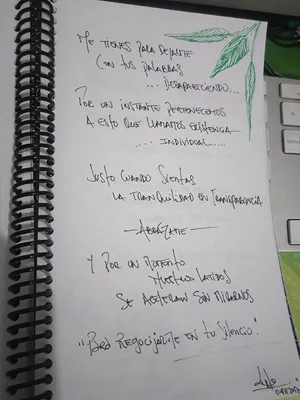 Me tienes para dejarte
con tus palabras
... desapareciendo...
Por un instante pertenecemos
a esto que llamamos existencia
.... individual....
Justo cuando sientas
la tranquilidad en transparencia
— Abrázame —
Y por un momento
nuestros latidos
se aceleran sin mirarnos
"Para regocijarme en tu silencio."